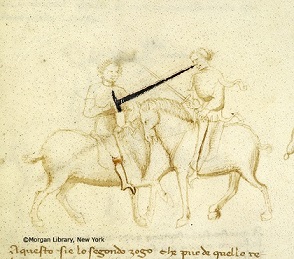 ©Morgan Library, New York
Aquesto sie lo segondo zogo che puo de quella re-